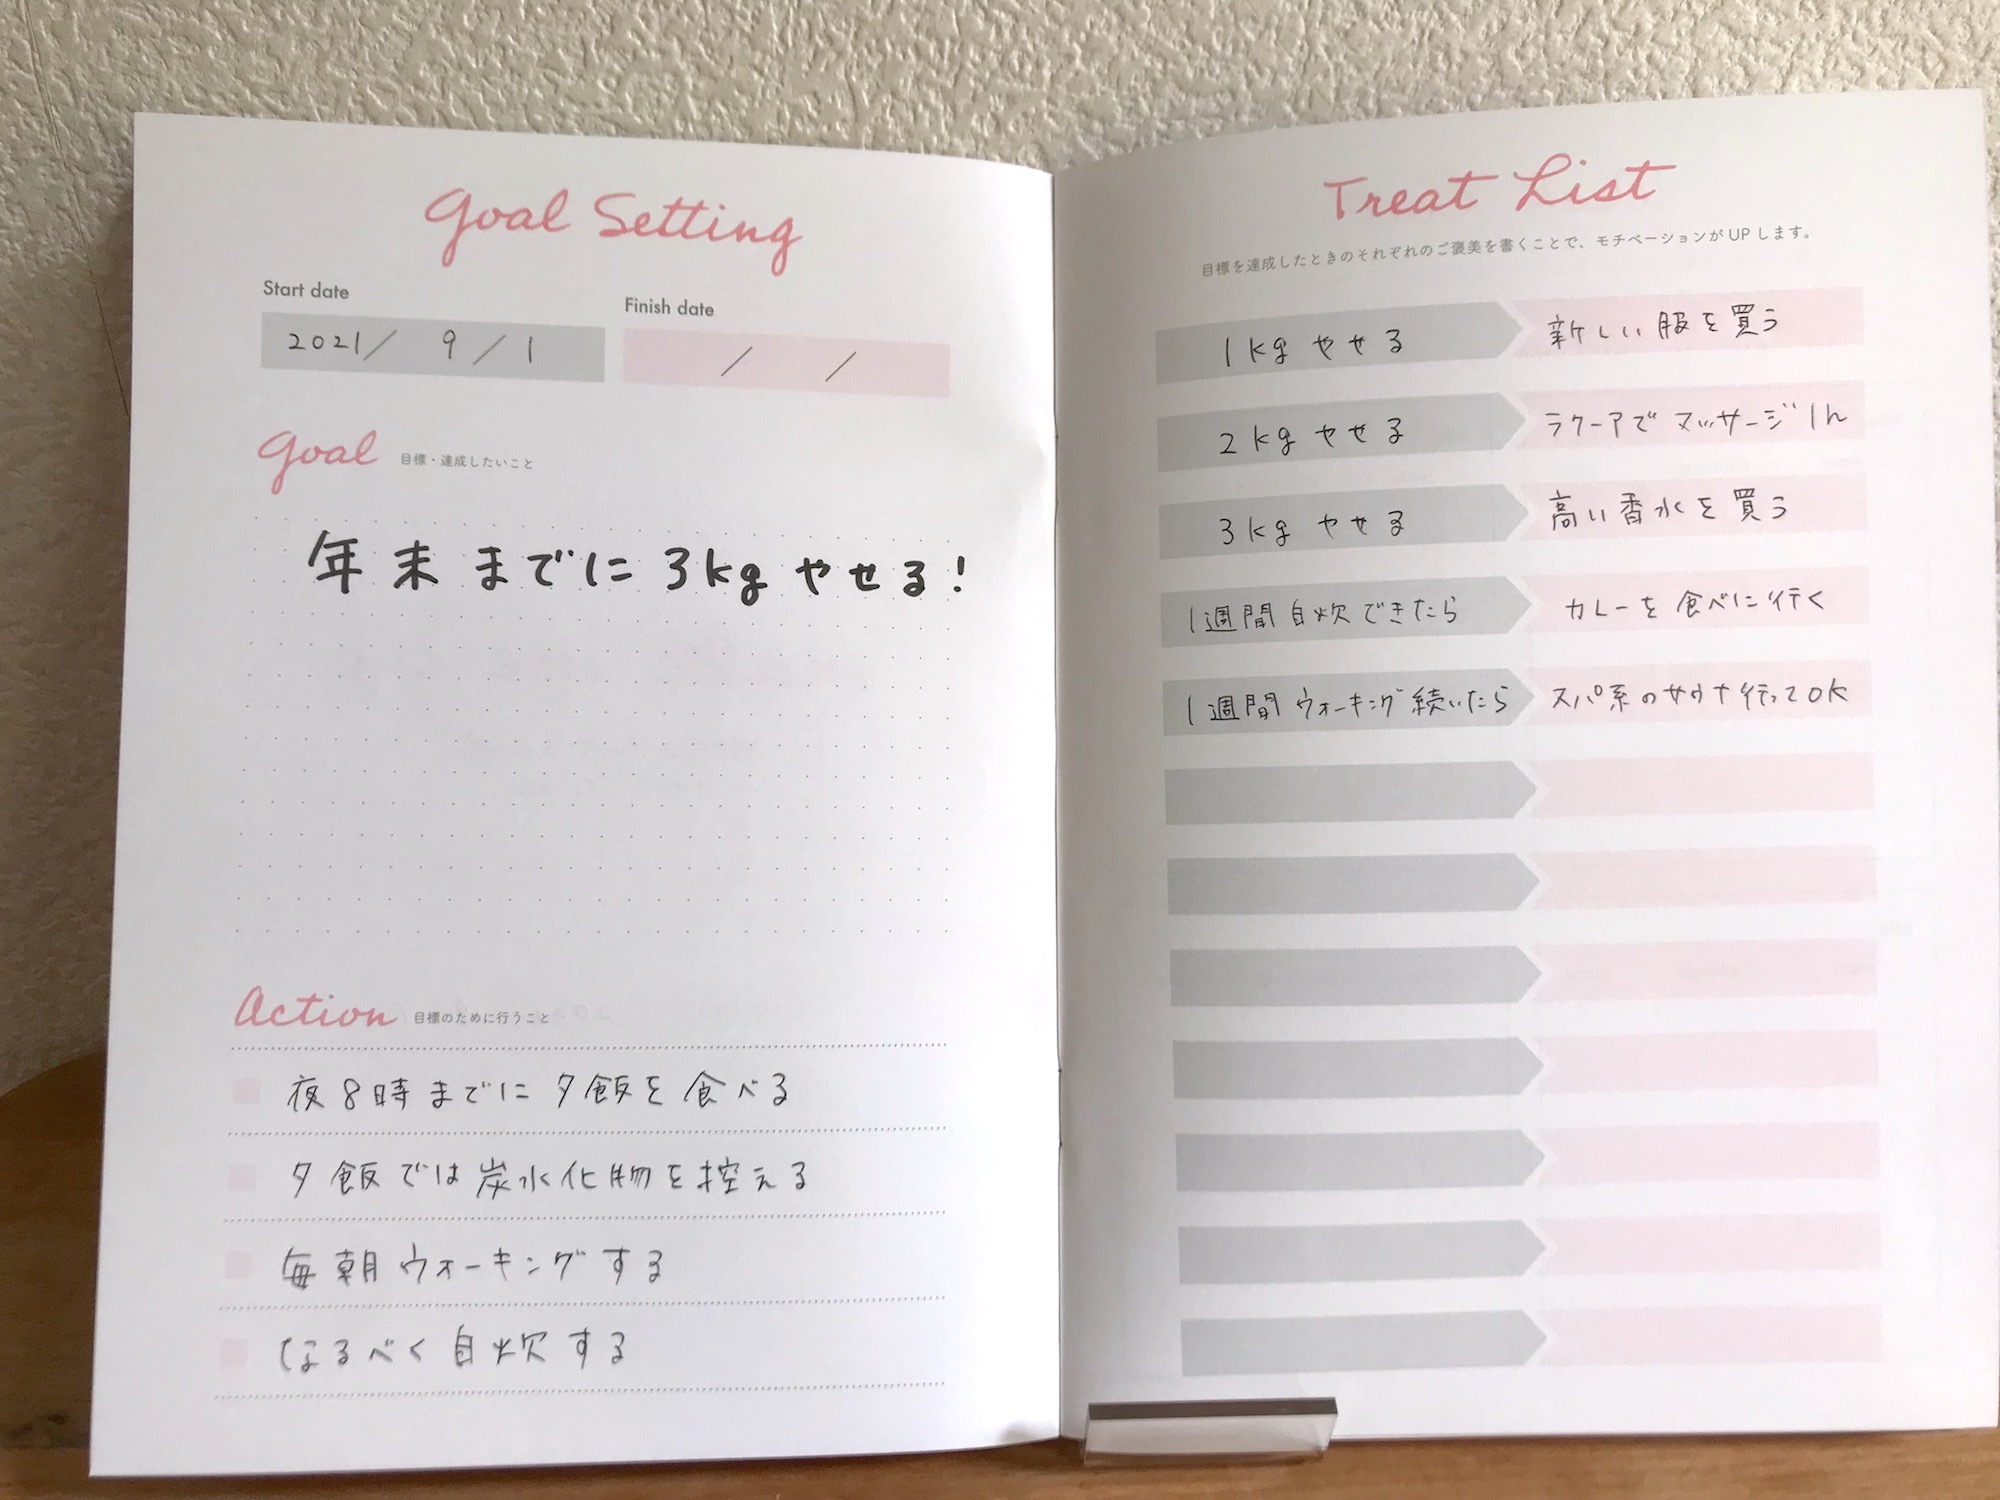 Goal Setting
Start date
Finish date
2021/ 9/1
/ /
Goal 目標・達成したいこと
年末までに3kgやせる!
Action 目標のために行うこと
夜8時までに夕飯を食べる
夕飯では炭水化物を控える
毎朝ウォーキングする
なるべく自炊する
Treat List
目標を達成したときのそれぞれのご褒美を書くことで、モチベーションがUPします。
1kgやせる 新しい服を買う
2kgやせる ラクーアでマッサージ1h
3kgやせる 高い香水を買う
1週間自炊できたら カレーを食べに行く
1週間ウォーキング続いたら スパ系のサウナ行ってOK